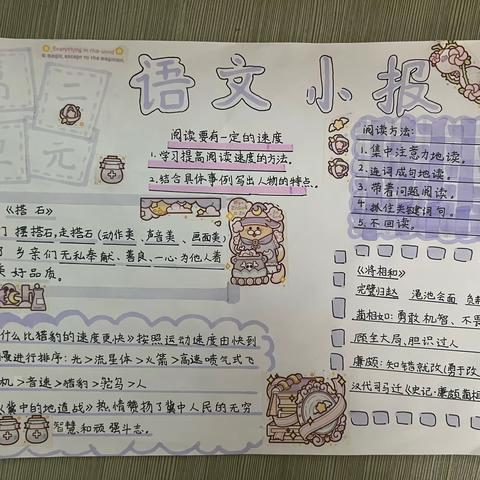 Everything in the world
is magic, except to the magician.
语文小报
第二单元
阅读要有一定的速度
1.学习提高阅读速度的方法。
2.结合具体事例写出人物的特点。
阅读方法:
1.集中注意力地读。
2.连词成句地读。
3.带着问题阅读。
4.抓住关键词句。
5.不回读。
《搭石》
们摆搭石,走搭石(动作美、声音美、画面美)
乡亲们无私奉献、善良、一心为他人着
美好品质。
什么比猎豹的速度更快》按照运动速度由快到
慢进行排序:光>流星体>火箭>高速喷气式飞
机>音速>猎豹>鸵鸟>人
《冀中的地道战》热情赞扬了冀中人民的无穷
智慧和顽强斗志。
《将相和》
完璧归赵 渑池会面 负荆
蔺相如:勇敢机智、不畏
顾全大局,胆识过人
廉颇:知错就改(勇于改
汉代司马迁《史记·廉颇蔺相